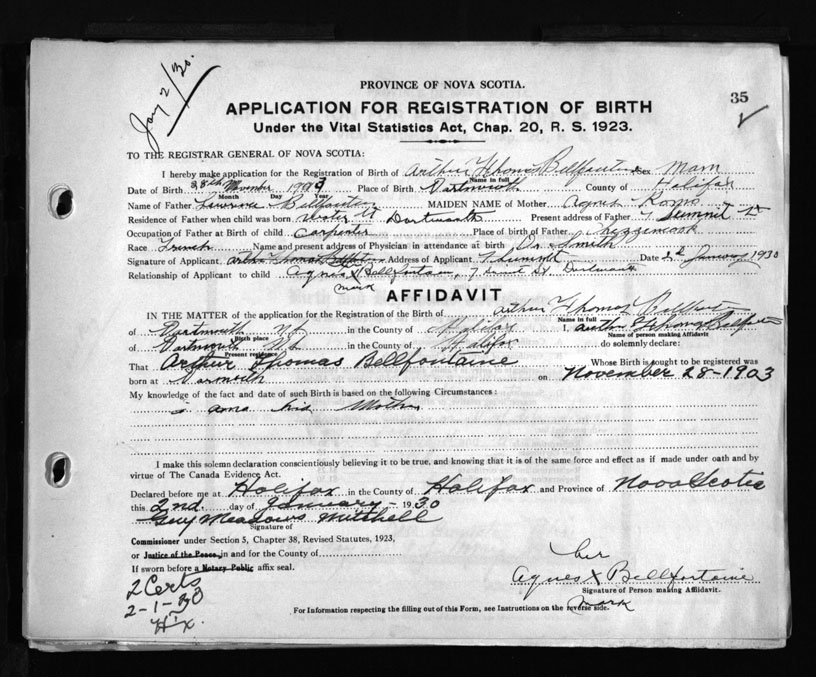 Jany 2/30.
PROVINCE OF NOVA SCOTIA.
35
APPLICATION FOR REGISTRATION OF BIRTH
Under the Vital Statistics Act, Chap. 20, R. S. 1923.
TO THE REGISTRAR GENERAL OF NOVA SCOTIA:
I hereby make application for the Registration of Birth of Arthur Thomas Bellfontaine Sex
Name in full
Date of Birth 28th November Place of Birth Dartmouth County of Halifax
Month Day Year
Name of Father Lawrence Bellfontain MAIDEN NAME of Mother Agnes
Residence of Father when child was born Water St Dortmouth Present address of Father 7 Summit St
Occupation of Father at Birth of child Carpenter Place of birth of Father Chezzincook
Race French Name and present address of Physician in attendance at birth Dr Smith
Signature of Applicant Arthur Thomas Address of Applicant 7 Summit Date 2d January 1930
Relationship of Applicant to child Agnes X Bellfontain, 7 St. Dortmouth
mark
AFFIDAVIT
IN THE MATTER of the application for the Registration of Birth of Arthur Thomas
Name in full
of Dartmouth N.S. in the County of Halifax I, Arthur Thomas
Birth place Name of person making Affidavit
of Dartmouth N.S. in the County of Halifax do solemnly declare:
Present residence
That Arthur Thomas Bellfontaine Whose Birth is sought to be registered was
born at on November 28-1903
My knowledge of the fact and date of such Birth is based on the following Circumstances:
his Mother
I make this solemn declaration conscientiously believing it to be true, and knowing that it is of the same force and effect as if made under oath and by
virtue of The Canada Evidence Act.
Declared before me at Halifax in the County of Halifax and Province of Nova Scotia
this 2nd. day of January - 1930
Guy Meadows Mitchell
Signature of
Commissioner under Section 5, Chapter 38, Revised Statutes, 1923,
or Justice of the Peace in and for the County of
If sworn before a Notary Public affix seal.
her
Agnes X Bellfontaine
Signature of Person making Affidavit.
mark
2 Certs
2-1-30
For Information respecting the filling out of this Form, see Instructions on the reverse side.